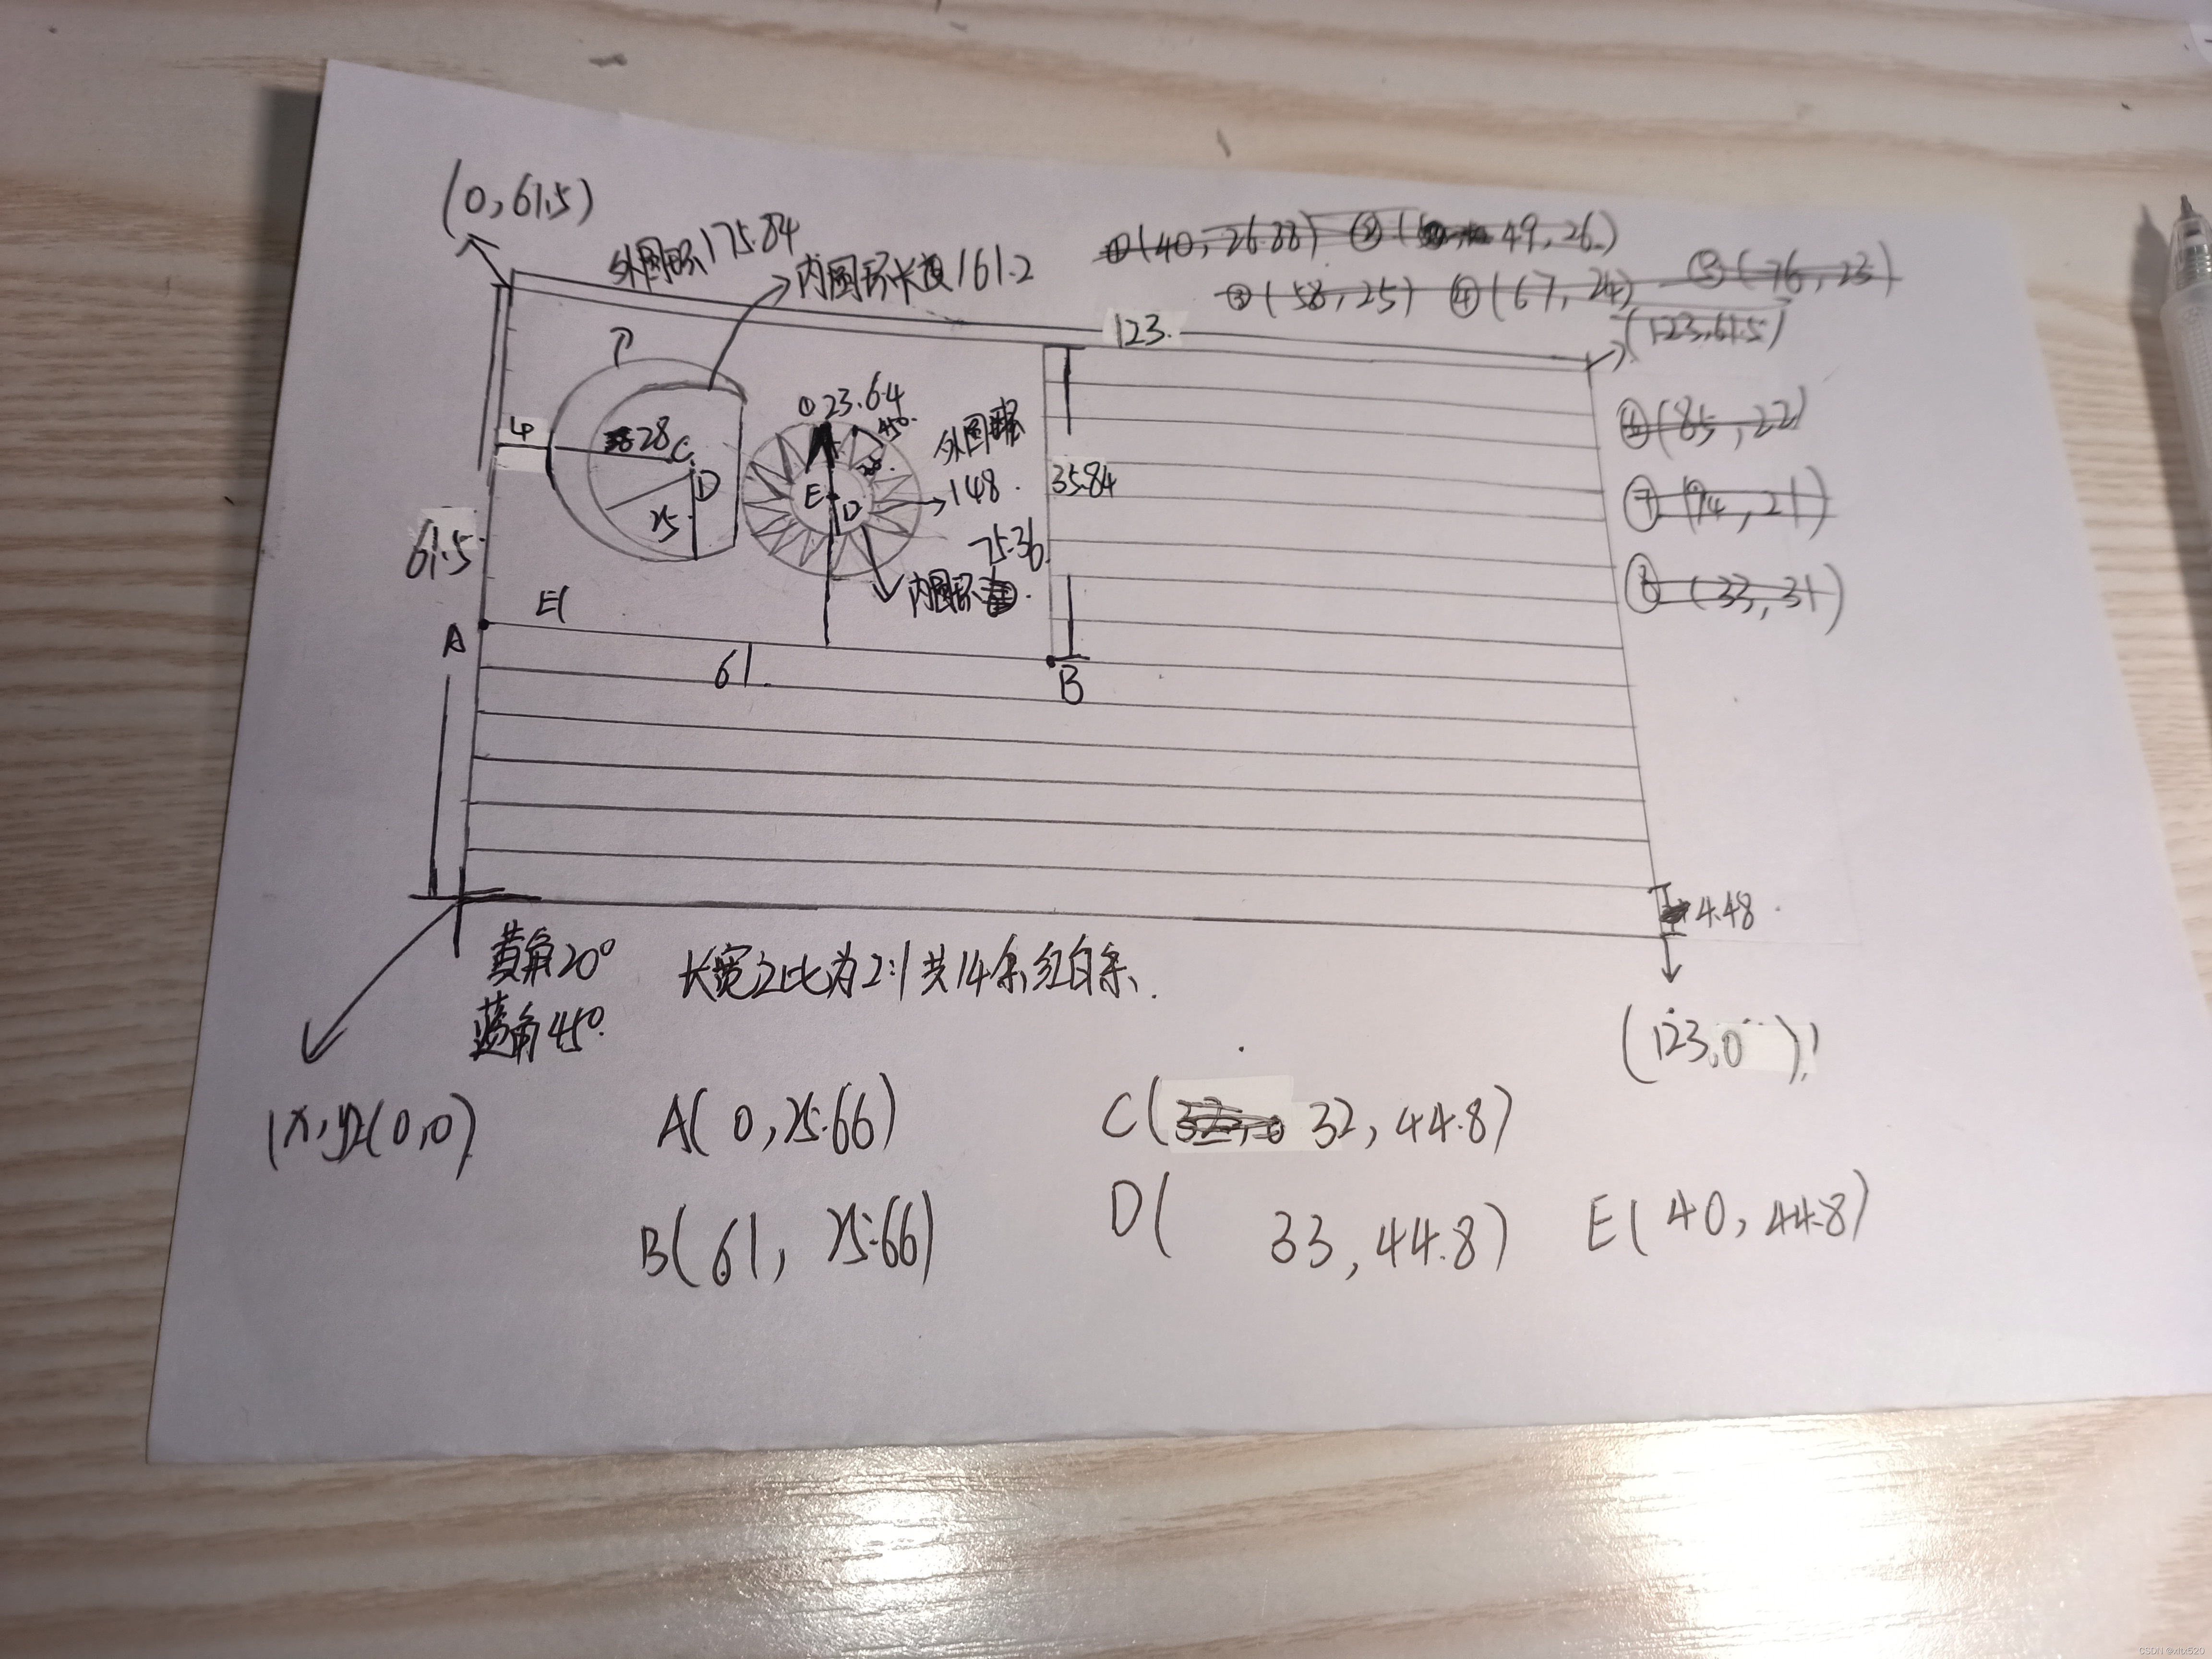 (0,61.5)
外圆环175.84
内圆环长度161.2
①(40,26.88) ② ( 49,26)
③(58,25) ④(67,24) ⑤(76,23)
123.
(123,61.5)
4
28 C
D
25
① 23.64
45°
E
D
外圆
148.
75.36
内圆环
35.84
⑥(85,22)
⑦(94,21)
⑧(33,31)
61.5
A
E(
61.
B
4.48
黄角20°
蓝角45°.
长宽之比为2:1 共14条红白条.
(123,0)
(x,y)(0,0)
A(0,25.66)
C( 32,44.8)
B(61,25.66)
D( 33,44.8)
E(40,44.8)
CSDN @xtbt520